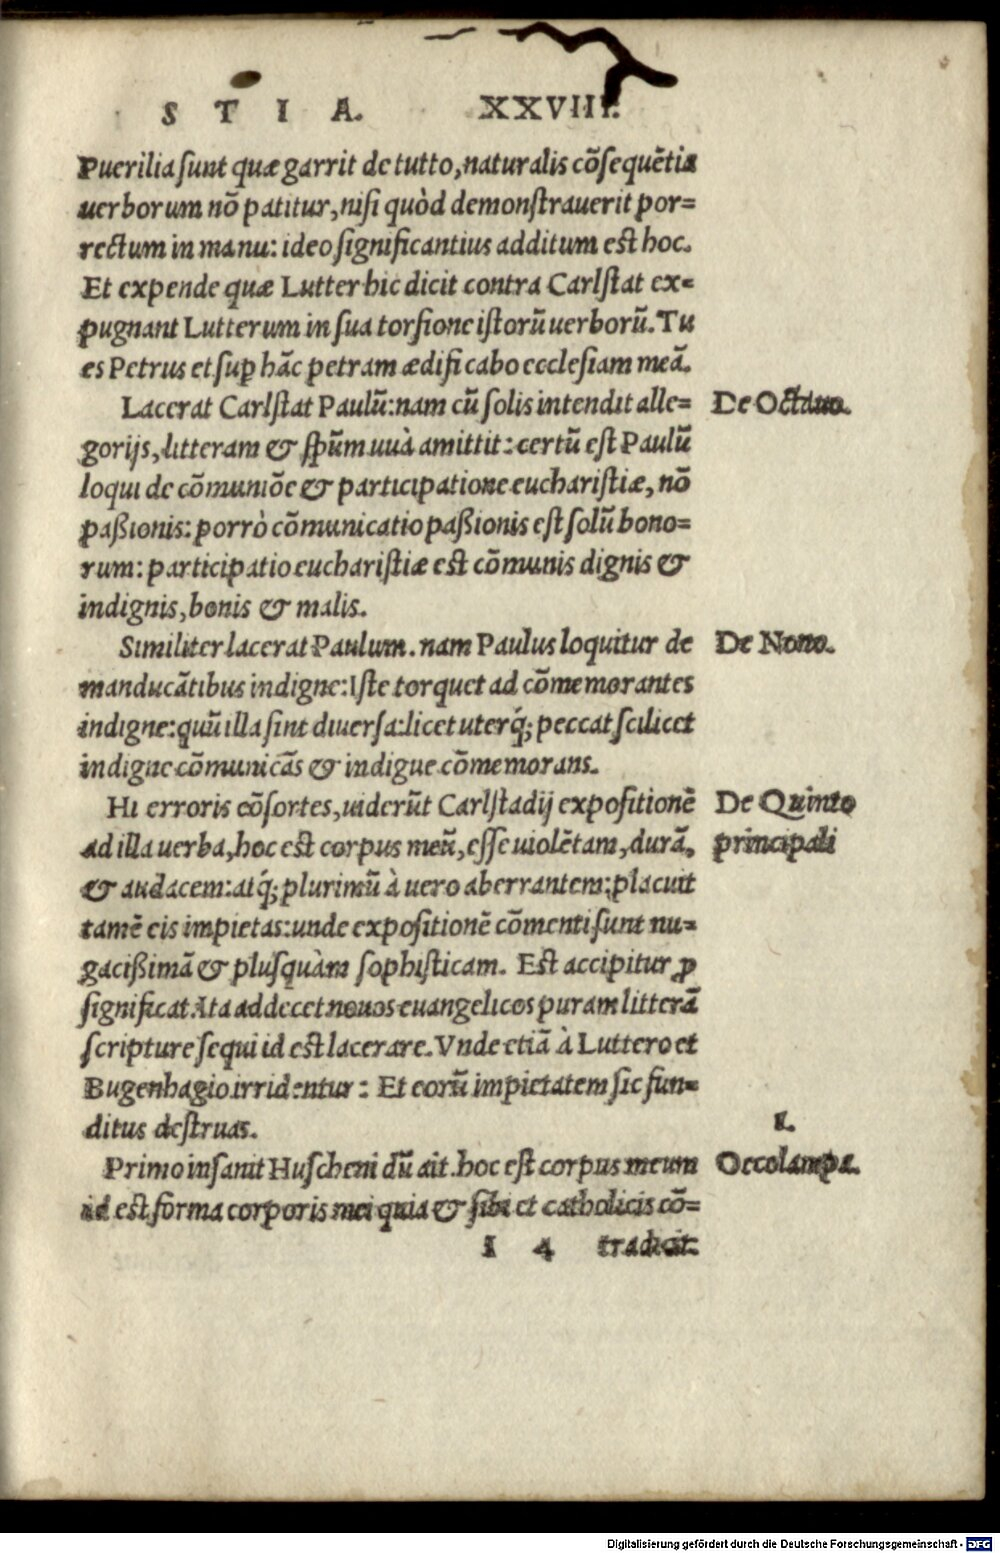 S T I A. XXVIII.
Puerilia sunt quæ garrit de tutto, naturalis cõsequẽtia
uerborum nõ patitur, nisi quòd demonstrauerit por=
rectum in manu: ideo significantius additum est hoc.
Et expende quæ Lutter hic dicit contra Carlstat ex=
pugnant Lutterum in sua torsione istorũ uerborũ. Tu
es Petrus et sup hãc petram ædificabo ecclesiam meã.
Lacerat Carlstat Paulũ: nam cũ solis intendit alle= De Octauo.
gorijs, litteram & spũm uuà amittit: certũ est Paulũ
loqui de cõmuniõe & participatione eucharistiæ, nõ
paßionis: porrò cõmunicatio paßionis est solũ bono=
rum: participatio eucharistiæ est cõmunis dignis &
indignis, bonis & malis.
Similiter lacerat Paulum. nam Paulus loquitur de De Nono.
manducãtibus indigne: Iste torquet ad cõmemorantes
indigne: quũ illa sint diuersa: licet uterq́; peccat scilicet
indigne cõmunicãs & indigue cõmemorans.
Hi erroris cõsortes, uiderũt Carlstadij expositionẽ De Quinto
ad illa uerba, hoc est corpus meũ, esse uiolẽtam, durã, principali
& audacem: atq́; plurimũ à uero aberrantem; placuit
tamẽ eis impietas: unde expositionẽ cõmenti sunt nu=
gacißimã & plusquàm sophisticam. Est accipitur ꝓ
significat. Ita addecet nouos euangelicos puram litterã
scripture sequi id est lacerare. Vnde etiã à Luttero et
Bugenhagio irridentur: Et eorũ impietatem sic fun=
ditus destruas.
I.
Primo insanit Huscheni dũ ait. hoc est corpus meum Oecolampa.
id est forma corporis mei quia & sibi et catholicis cõ=
I 4 tradicit.
Digitalisierung gefördert durch die Deutsche Forschungsgemeinschaft - DFG